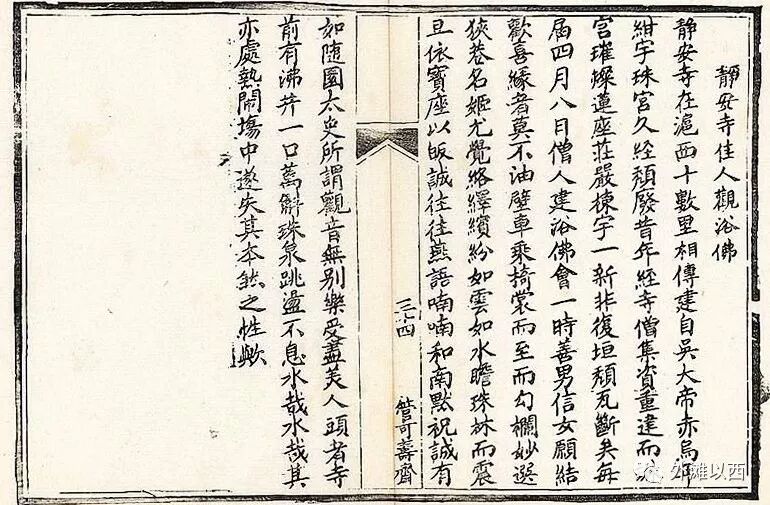 靜安寺佳人觀浴佛
靜安寺在滬西十數里相傳建自吳大帝赤烏
紺宇珠宮久經頹廢昔年經寺僧集資重建而
宮璀燦蓮座莊嚴棟宇一新非復垣頹瓦斷矣每
屆四月八日僧人建浴佛會一時善男信女願結
歡喜緣者莫不油壁車乘掎裳而至而勾欄妙選
狹巷名姬尤覺絡繹繽紛如雲如水瞻珠林而震
旦依寶座以皈誠往往燕語喃喃和南默祝誠有
可壽齋
如隨園太史所謂觀音無別樂受盡美人頭者寺
前有沸井一口萬斛珠泉跳盪不息水哉水哉其
亦處熱鬧塲中遂失其本然之性歟
外滩以西